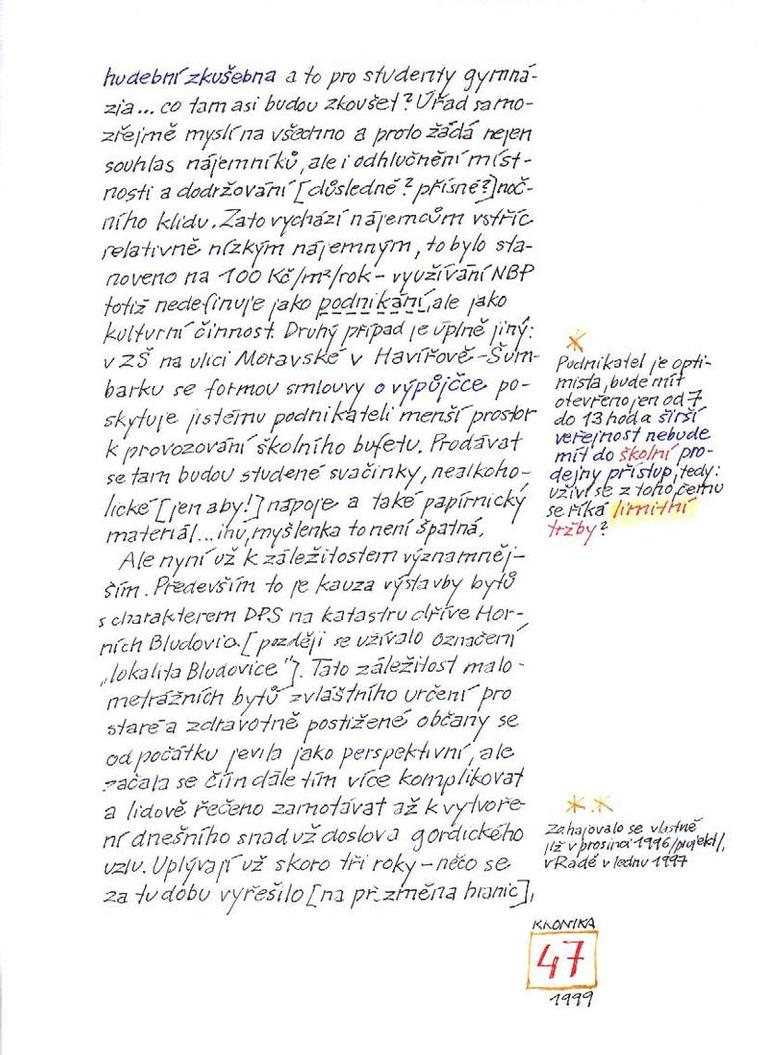 hudební zkušebna a to pro studenty gymná-
zia... co tam asi budou zkoušet? Úřad samo-
zřejmě myslí na všechno a proto žádá nejen
souhlas nájemníků, ale i odhlučnění míst-
nosti a dodržování [důsledné? přísné?] noč-
ního klidu. Zato vychází nájemcům vstříc
relativně nízkým nájemným, to bylo sta-
noveno na 100 Kč/m²/rok - využívání NBP
totiž nedefinuje jako podnikání, ale jako
kulturní činnost. Druhý případ je úplně jiný:
v ZŠ na ulici Moravské v Havířově-Šum-
barku se formou smlouvy o výpůjčce po-
skytuje jistému podnikateli menší prostor
k provozování školního bufetu. Prodávat
se tam budou studené svačinky, nealkoho-
lické [jen aby!] nápoje a také papírnický
materiál... inu, myšlenka to není špatná,
Ale nyní už k záležitostem významněj-
ším. Především to je kauza výstavby bytů
s charakterem DPS na katastru dříve Hor-
ních Bludovic. [později se užívalo označení
„lokalita Bludovice"]. Tato záležitost malo-
metrážních bytů zvláštního určení pro
staré a zdravotně postižené občany se
od počátku jevila jako perspektivní, ale
začala se čím dále tím více komplikovat
a lidově řečeno zamotávat až k vytvoře-
ní dnešního snad už doslova gordického
uzlu. Uplývají už skoro tři roky - něco se
za tu dobu vyřešilo [na př. změna hranic],
*
Podnikatel je opti-
mista, bude mít
otevřeno jen od 7
do 13 hod a širší
veřejnost nebude
mít do školní pro-
dejny přístup, tedy:
uživí se z toho, čemu
se říká limitní
tržby?
* *
Zahajovalo se vlastně
již v prosinci 1996 /projekt/,
v Radě v lednu 1997
KRONIKA
47
1999